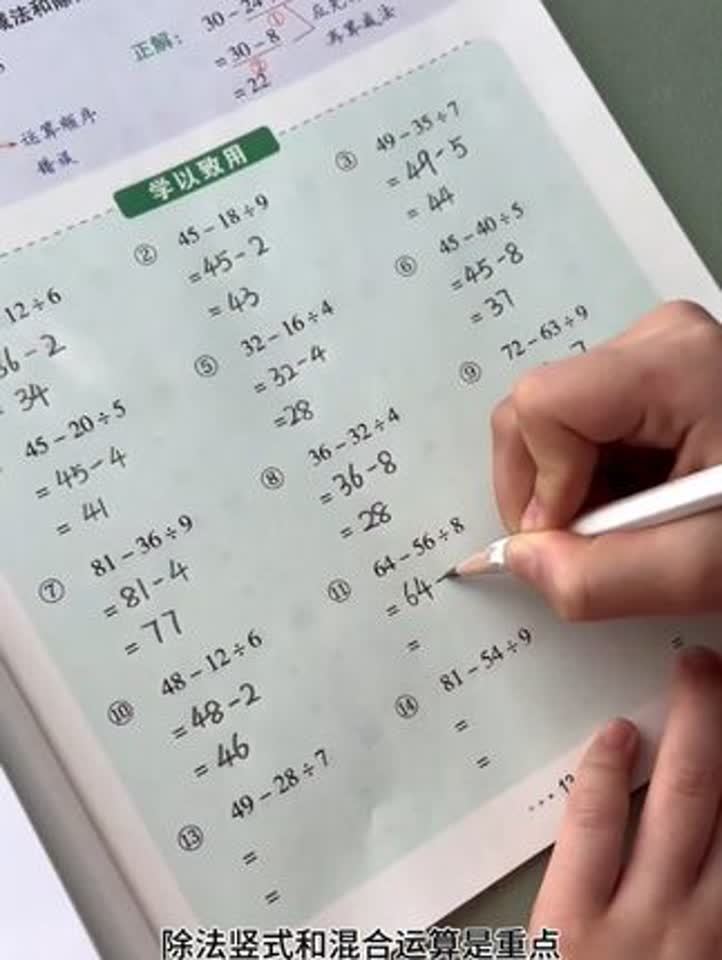 30 - 24
①
正解：
= 30 - 8
②
= 22
再算减法
运算顺序
错误
学以致用
③ 49 - 35 ÷ 7
= 49 - 5
= 44
② 45 - 18 ÷ 9
= 45 - 2
= 43
⑥ 45 - 40 ÷ 5
= 45 - 8
= 37
12 ÷ 6
36 - 2
= 34
⑤ 32 - 16 ÷ 4
= 32 - 4
= 28
⑨ 72 - 63 ÷ 9
7
45 - 20 ÷ 5
= 45 - 4
= 41
⑧ 36 - 32 ÷ 4
= 36 - 8
= 28
⑦ 81 - 36 ÷ 9
= 81 - 4
= 77
⑪ 64 - 56 ÷ 8
= 64 -
=
⑩ 48 - 12 ÷ 6
= 48 - 2
= 46
⑭ 81 - 54 ÷ 9
=
=
=
⑬ 49 - 28 ÷ 7
=
=
除法竖式和混合运算是重点